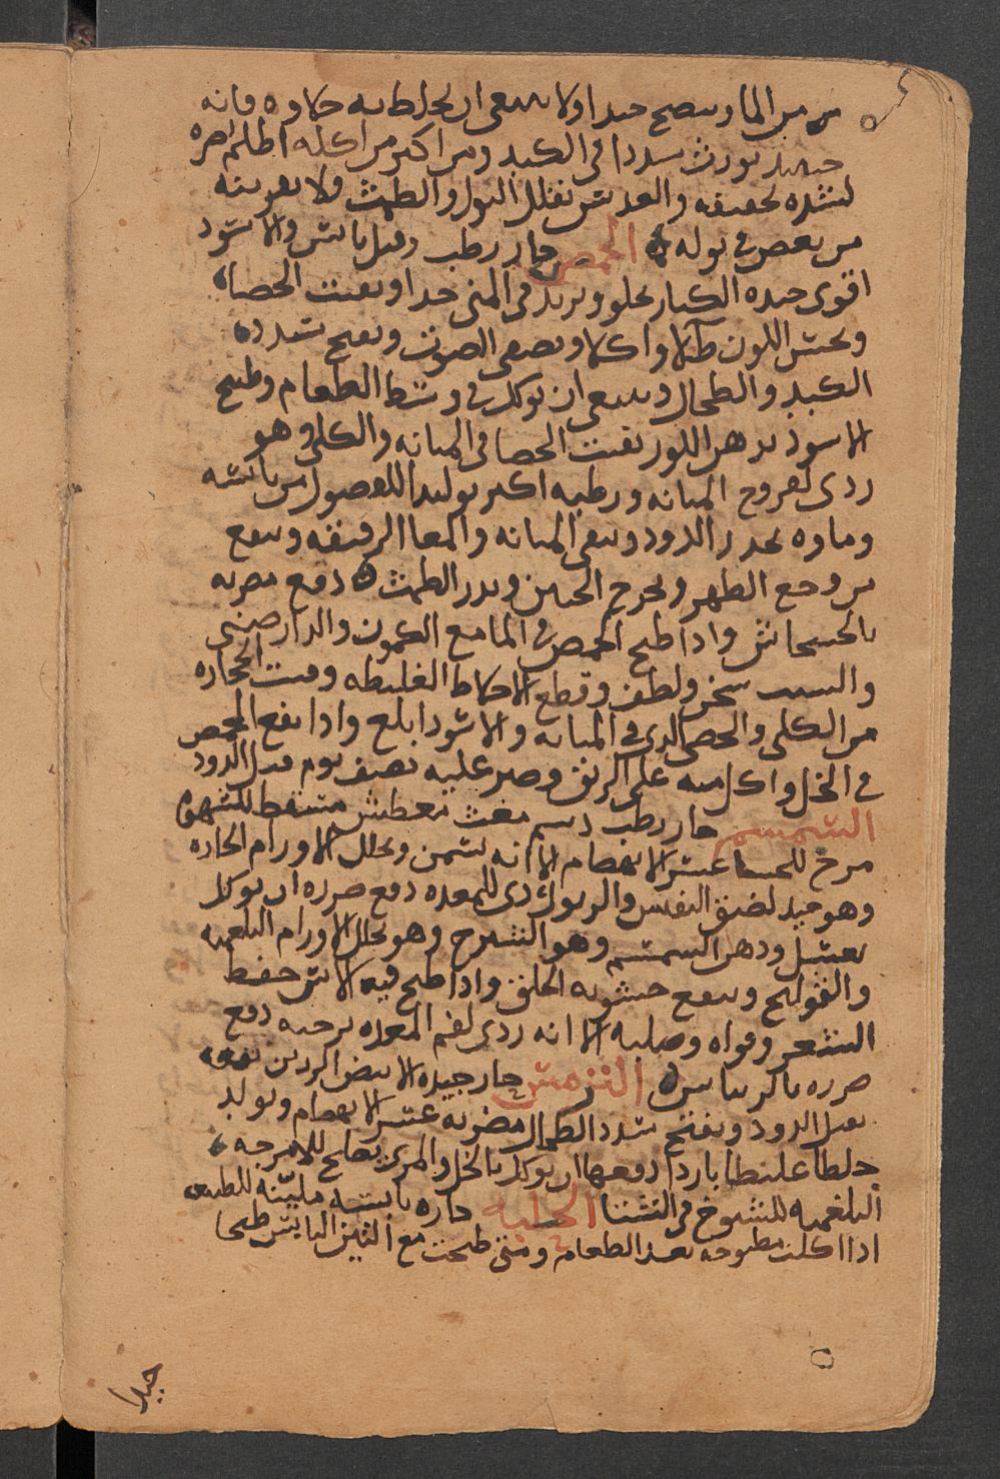 مرمن الما وينضج جيدا ولا ينبغي ان يخلط به حلاوه فانه
حينيذ يورث سددا في الكبد ومن اكثر من اكله اظلم بصره
لشده تجفيفه والعدس يقلل البول والطمث فلا يقربنه
من بعض في بوله الحمص حار رطب وقيل يابس والاسود
اقوى جيده الكبار يجلو ويزيد في المني جدا ويفتت الحصاه
ويحسن اللون طلا واكلا ويصفي الصوت ويفتح سدد
الكبد والطحال وينبغي ان يوكل في وسط الطعام وطبيخ
الاسود بدهن اللوز يفتت الحصا في المثانه والكلى وهو
ردى لقروح المثانه ورطبه اكثر توليدا للفضول من يابسه
وماوه يحدر الدود وينقي المثانه والمعا الرقيقه وينفع
من وجع الظهر ويخرج الجنين ويدر الطمث دفع مضرته
بالخشخاش واذا طبخ الحمص في الما مع الكمون والدارصيني
والشبت سخن ولطف وقطع الاخلاط الغليظه وفتت الحجاره
من الكلى والحصى الذي في المثانه والاسود ابلغ واذا نقع الحمص
في الخل واكل منه على الريق وصبر عليه نصف يوم قتل الدود
السمسم حار رطب دسم مغث معطش مسقط للشهوه
مرخ للمعا عسر الانهضام الا انه يسمن ويحلل الاورام الحاره
وهو جيد لضيق النفس والربو ردى للمعده دفع ضرره ان يوكل
بعسل ودهن السمسم وهو الشيرج وهو يحلل الاورام البلغميه
والقولنج وينفع خشونه الحلق واذا طبخ فيه الاس حفظ
الشعر وقواه وصلبه الا انه ردى لفم المعده يرخيه دفع
ضرره بالريباس الترمس حار جيده الابيض الرزين
يقتل الدود ويفتح سدد الطحال مضرته عسر الانهضام ويولد
خلطا غليظا باردا دفعها ان يوكل بالخل والمري يصلح للامزجه
البلغميه للشيوخ في الشتا الحلبه حاره يابسه مليّنه للطبع
اذا اكلت مطبوخه بعد الطعام ومتى طبخت مع التين اليابس طبخا
جيدا